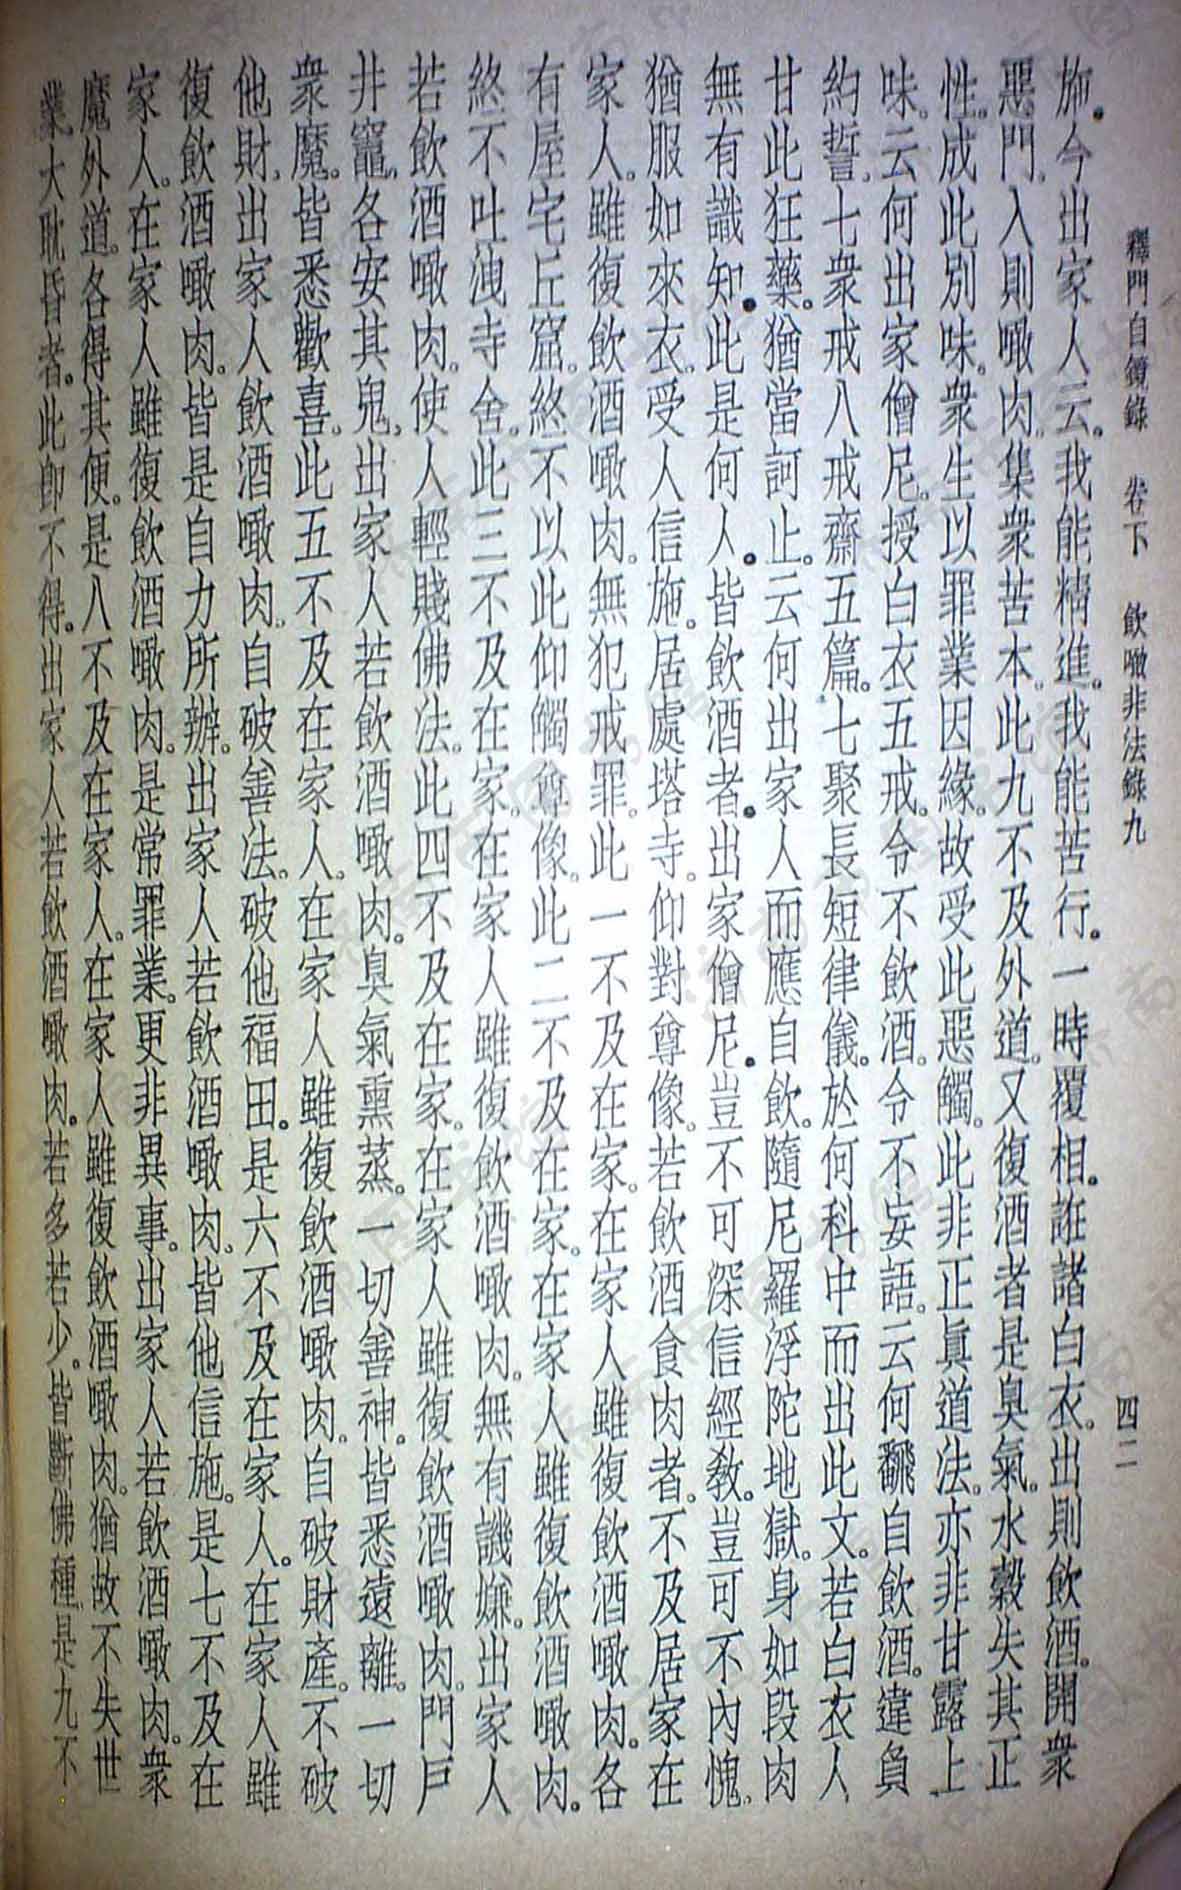 釋門自鏡錄　卷下　飲噉非法錄九　四二
施。今出家人云。我能精進。我能苦行。一時覆相。誑諸白衣。出則飲酒。開衆
惡門。入則噉肉。集衆苦本。此九不及外道。又復酒者是臭氣。水穀失其正
性。成此別味。衆生以罪業因緣。故受此惡觸。此非正眞道法。亦非甘露上
味。云何出家僧尼。授白衣五戒。令不飲酒。令不妄語。云何飜自飲酒。違負
約誓。七衆戒八戒齋五篇。七聚長短律儀。於何科中而出此文。若白衣人
甘此狂藥。猶當訶止。云何出家人而應自飲。隨尼羅浮陀地獄。身如段肉
無有識知。此是何人。皆飲酒者。出家僧尼。豈不可深信經敎。豈可不內愧。
猶服如來衣。受人信施。居處塔寺。仰對尊像。若飲酒食肉者。不及居家在
家人。雖復飲酒噉肉。無犯戒罪。此一不及在家。在家人雖復飲酒噉肉。各
有屋宅丘窟。終不以此仰觸尊像。此二不及在家。在家人雖復飲酒噉肉。
終不吐洩寺舍。此三不及在家。在家人雖復飲酒噉肉。無有譏嫌。出家人
若飲酒噉肉。使人輕賤佛法。此四不及在家。在家人雖復飲酒噉肉。門戶
井竈。各安其鬼。出家人若飲酒噉肉。臭氣熏蒸。一切善神。皆悉遠離。一切
衆魔。皆悉歡喜。此五不及在家人。在家人雖復飲酒噉肉。自破財產。不破
他財。出家人飲酒噉肉。自破善法。破他福田。是六不及在家人。在家人雖
復飲酒噉肉。皆是自力所辦。出家人若飲酒噉肉。皆他信施。是七不及在
家人。在家人雖復飲酒噉肉。是常罪業。更非異事。出家人若飲酒噉肉。衆
魔外道。各得其便。是八不及在家人。在家人雖復飲酒噉肉。猶故不失世
業。大耽昏者。此卽不得。出家人若飲酒噉肉。若多若少。皆斷佛種。是九不